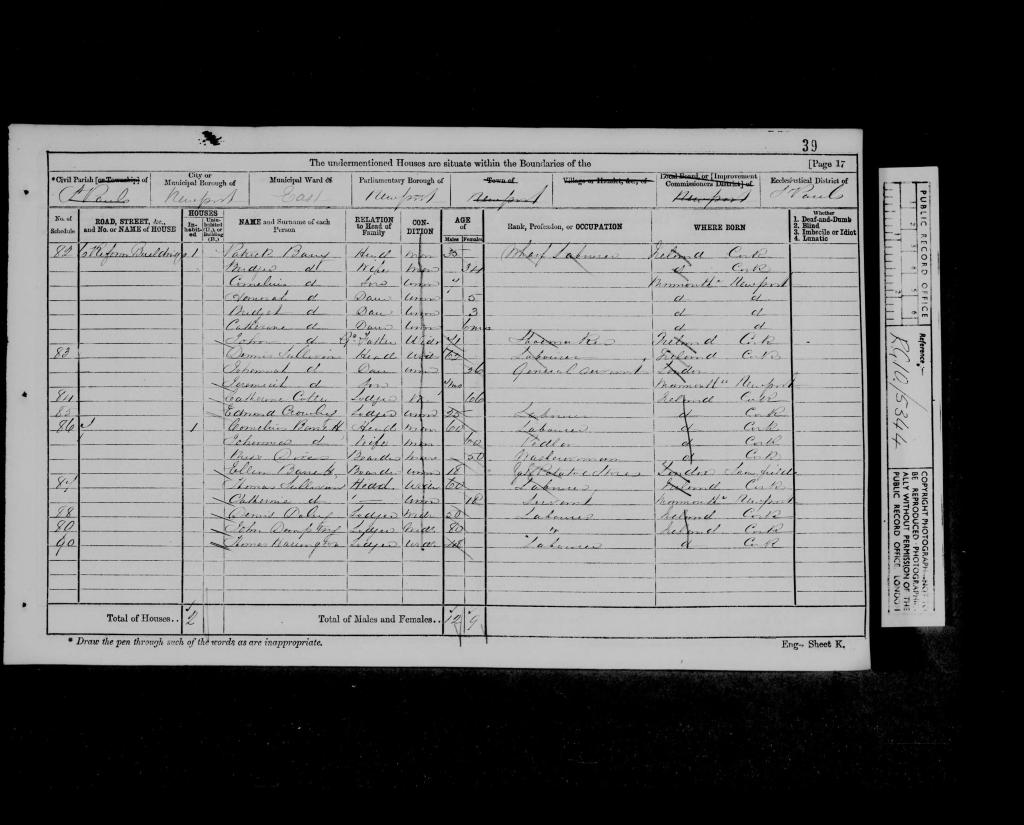 39
The undermentioned Houses are situate within the Boundaries of the [Page 17
*Civil Parish [or Township] of City or Municipal Borough of Municipal Ward of Parliamentary Borough of Town of Village or Hamlet, &c., of Local Board, or [Improvement Commissioners District] of Ecclesiastical District of
St Pauls Newport East Newport Newport Newport St Paul
No. of Schedule ROAD, STREET, &c., and No. or NAME of HOUSE HOUSES Inhabited Uninhabited (U.), or Building (B.) NAME and Surname of each Person RELATION to Head of Family CONDITION AGE of Males Females Rank, Profession, or OCCUPATION WHERE BORN Whether 1. Deaf-and-Dumb 2. Blind 3. Imbecile or Idiot 4. Lunatic
82 6 Reform Buildings 1 Patrick Barry Head Mar 35 Wharf Labourer Ireland Cork
d Wife Mar 34 d Cork
Cornelius d Son Unm 7 Monmouth Newport
Honorah d Daur Unm 5 d d
Bridget d Daur Unm 3 d d
Catherine d Daur Unm 6 mos d d
John d Father Widr 71 Shoemaker Ireland Cork
83 Dennis Sullivan Head Widr 62 Labourer Ireland Cork
d Daur Unm 26 General Servant London
Jeremiah d Son Monmouth Newport
84 Catherine Lodger Ireland Cork
85 Edmond Lodger Unm 25 Labourer d Cork
86 7 1 Cornelius Head Mar 60 Labourer d Cork
Johanna d Wife Mar 60 d Cork
Boarder 50 Washerwoman d Cork
Ellen Boarder Unm 18 London
87 Thomas Sullivan Head Widr 60 Labourer Ireland Cork
Catherine d Unm 18 Servant Monmouth Newport
88 Dennis Lodger Widr Labourer Ireland Cork
John Lodger Widr 80 " Ireland Cork
90 Thomas Lodger Widr Labourer d Cork
Total of Houses.. 2 Total of Males and Females.. 12 9
* Draw the pen through such of the words as are inappropriate. Eng.- Sheet K.
PUBLIC RECORD OFFICE
Reference:-
RG10/5344
COPYRIGHT PHOTOGRAPH - NOT TO BE REPRODUCED PHOTOGRAPHICALLY WITHOUT PERMISSION OF THE PUBLIC RECORD OFFICE LONDON